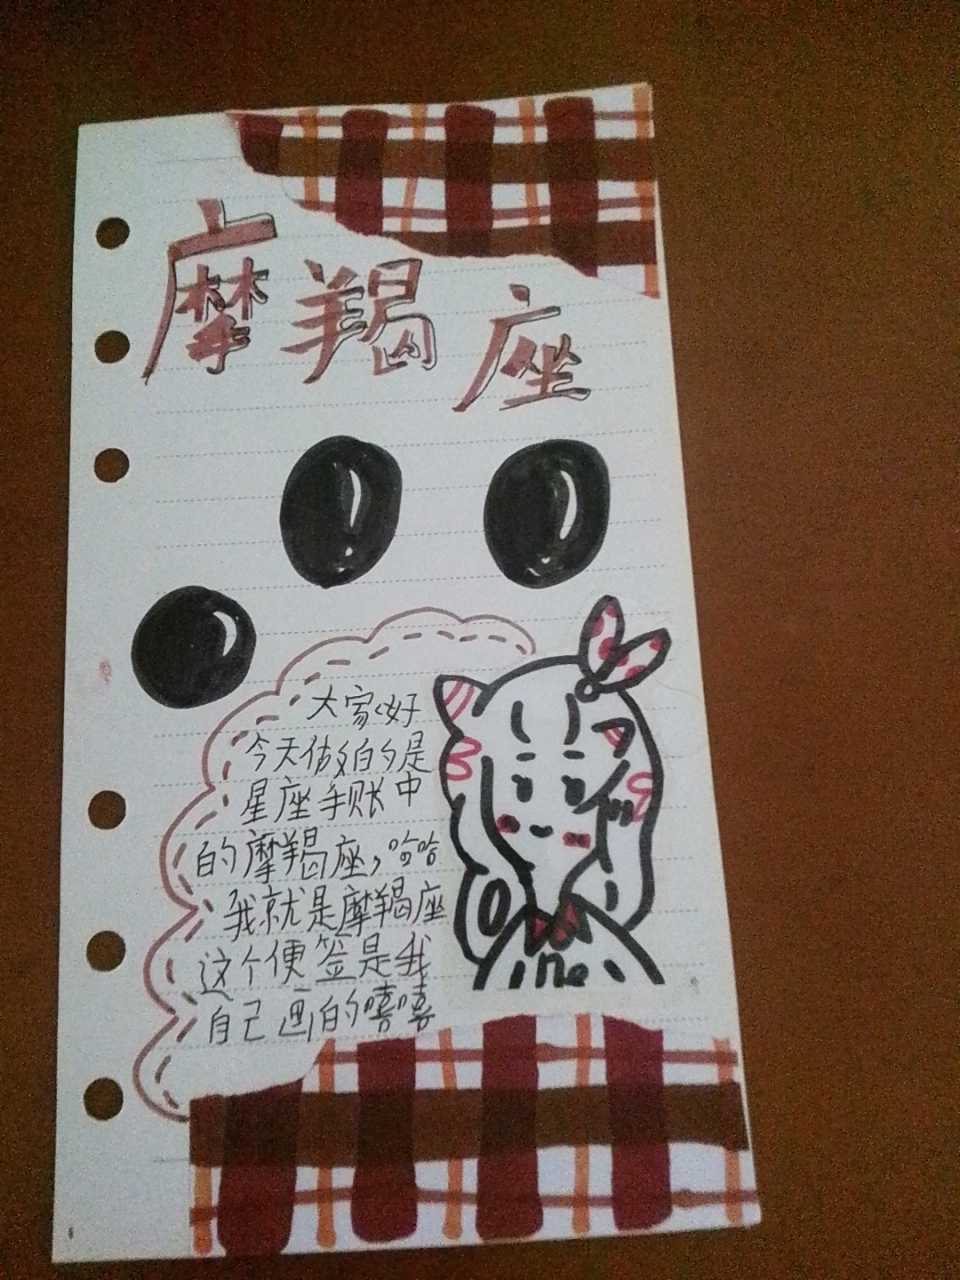 摩羯座
大家好
今天做的是
星座手账中
的摩羯座,哈哈
我就是摩羯座
这个便签是我
自己画的嘻嘻